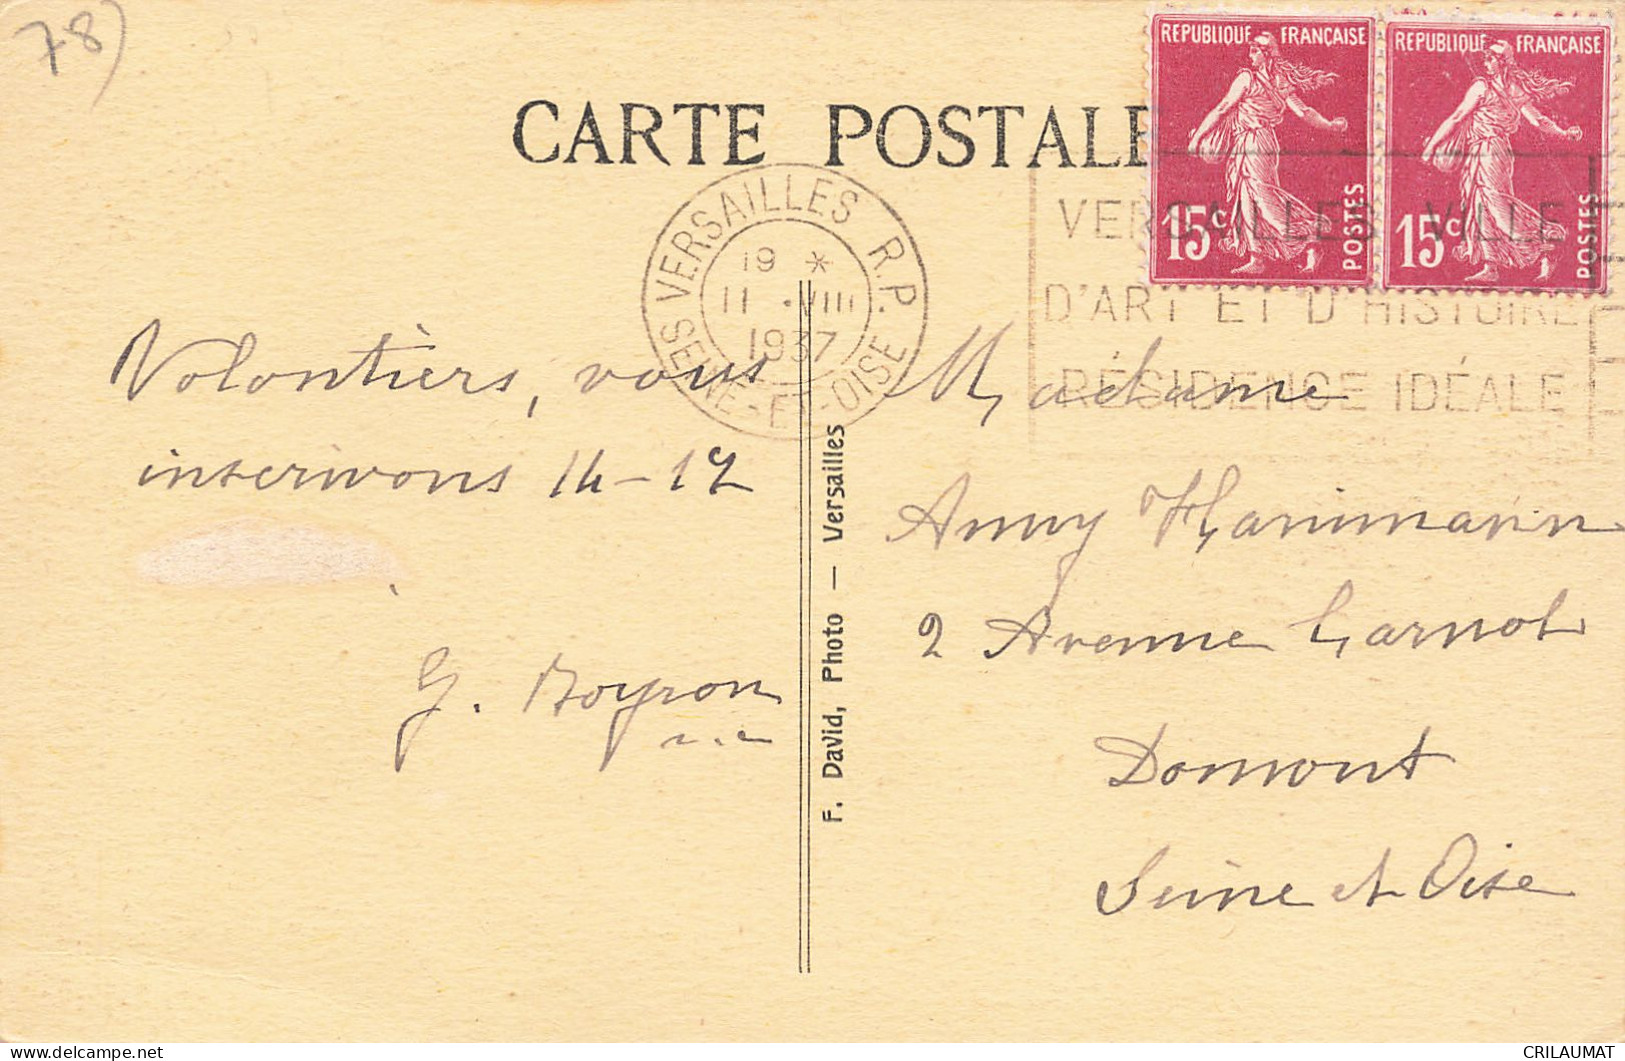 78)
CARTE POSTALE
RÉPUBLIQUE FRANÇAISE
15c
POSTES
RÉPUBLIQUE FRANÇAISE
15c
POSTES
VERSAILLES R.P.
19 *
11 .VIII
1937
SEINE-ET-OISE
VERSAILLES VILLE
D'ART ET D'HISTOIRE
RÉSIDENCE IDÉALE
Volontiers, vous
inscrivons 14-17
G. Boyron
F. David, Photo — Versailles
Madame
Anny Hanimann
2 Avenue Carnot
Domont
Seine et Oise
delcampe.net
CRILAUMAT